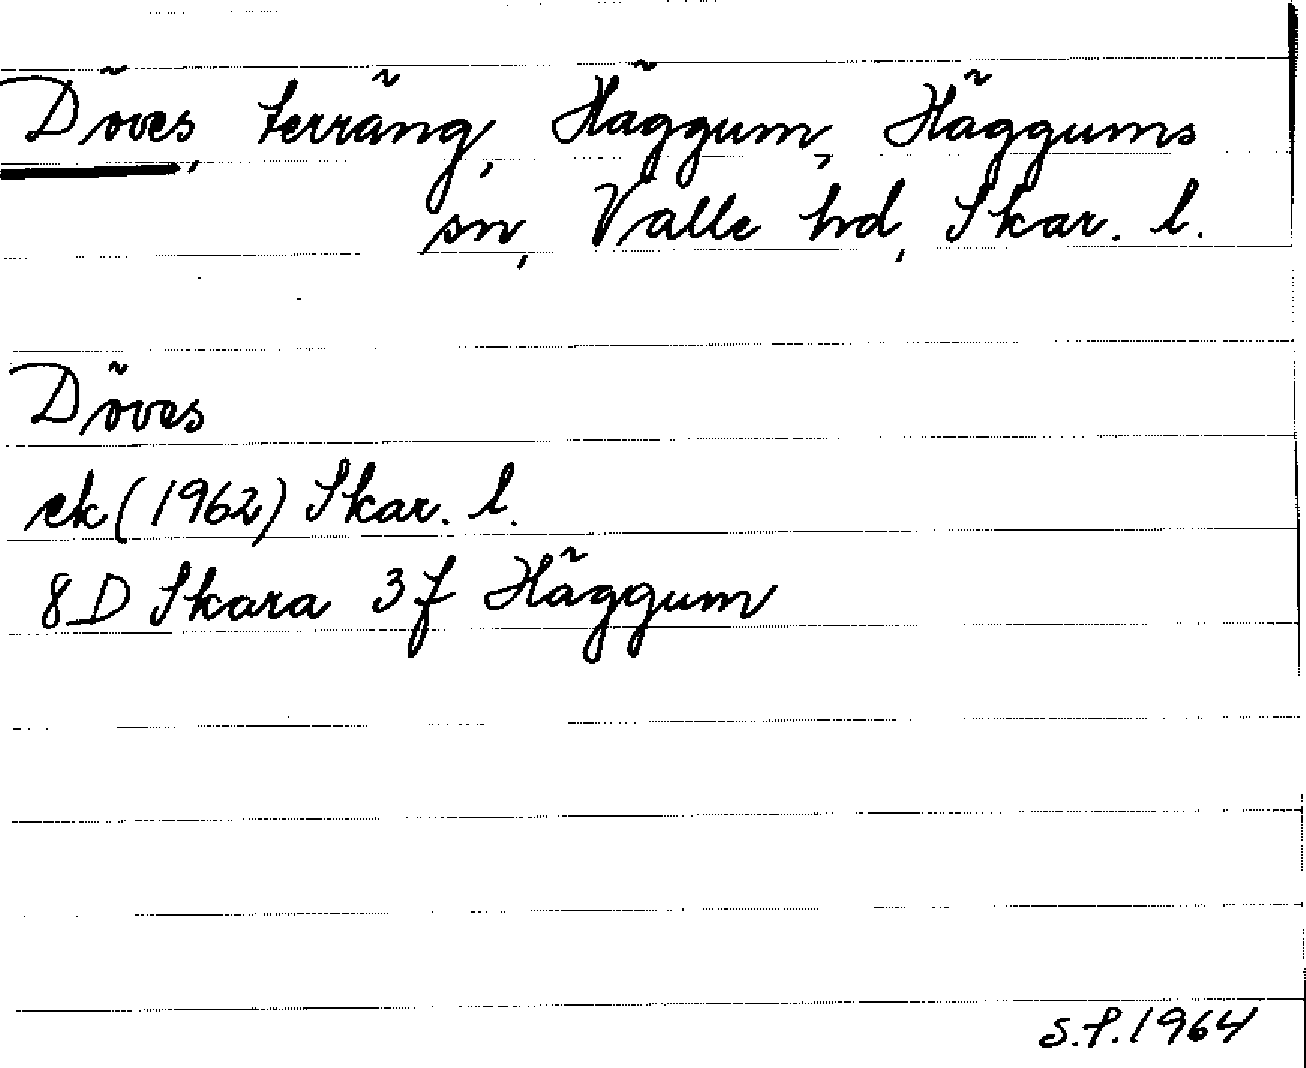 Döves, terräng, Häggum, Häggums
sn, Valle hd, Skar. l.
Döves
ek (1962) Skar. l.
8D Skara 3f Häggum
S.F. 1964